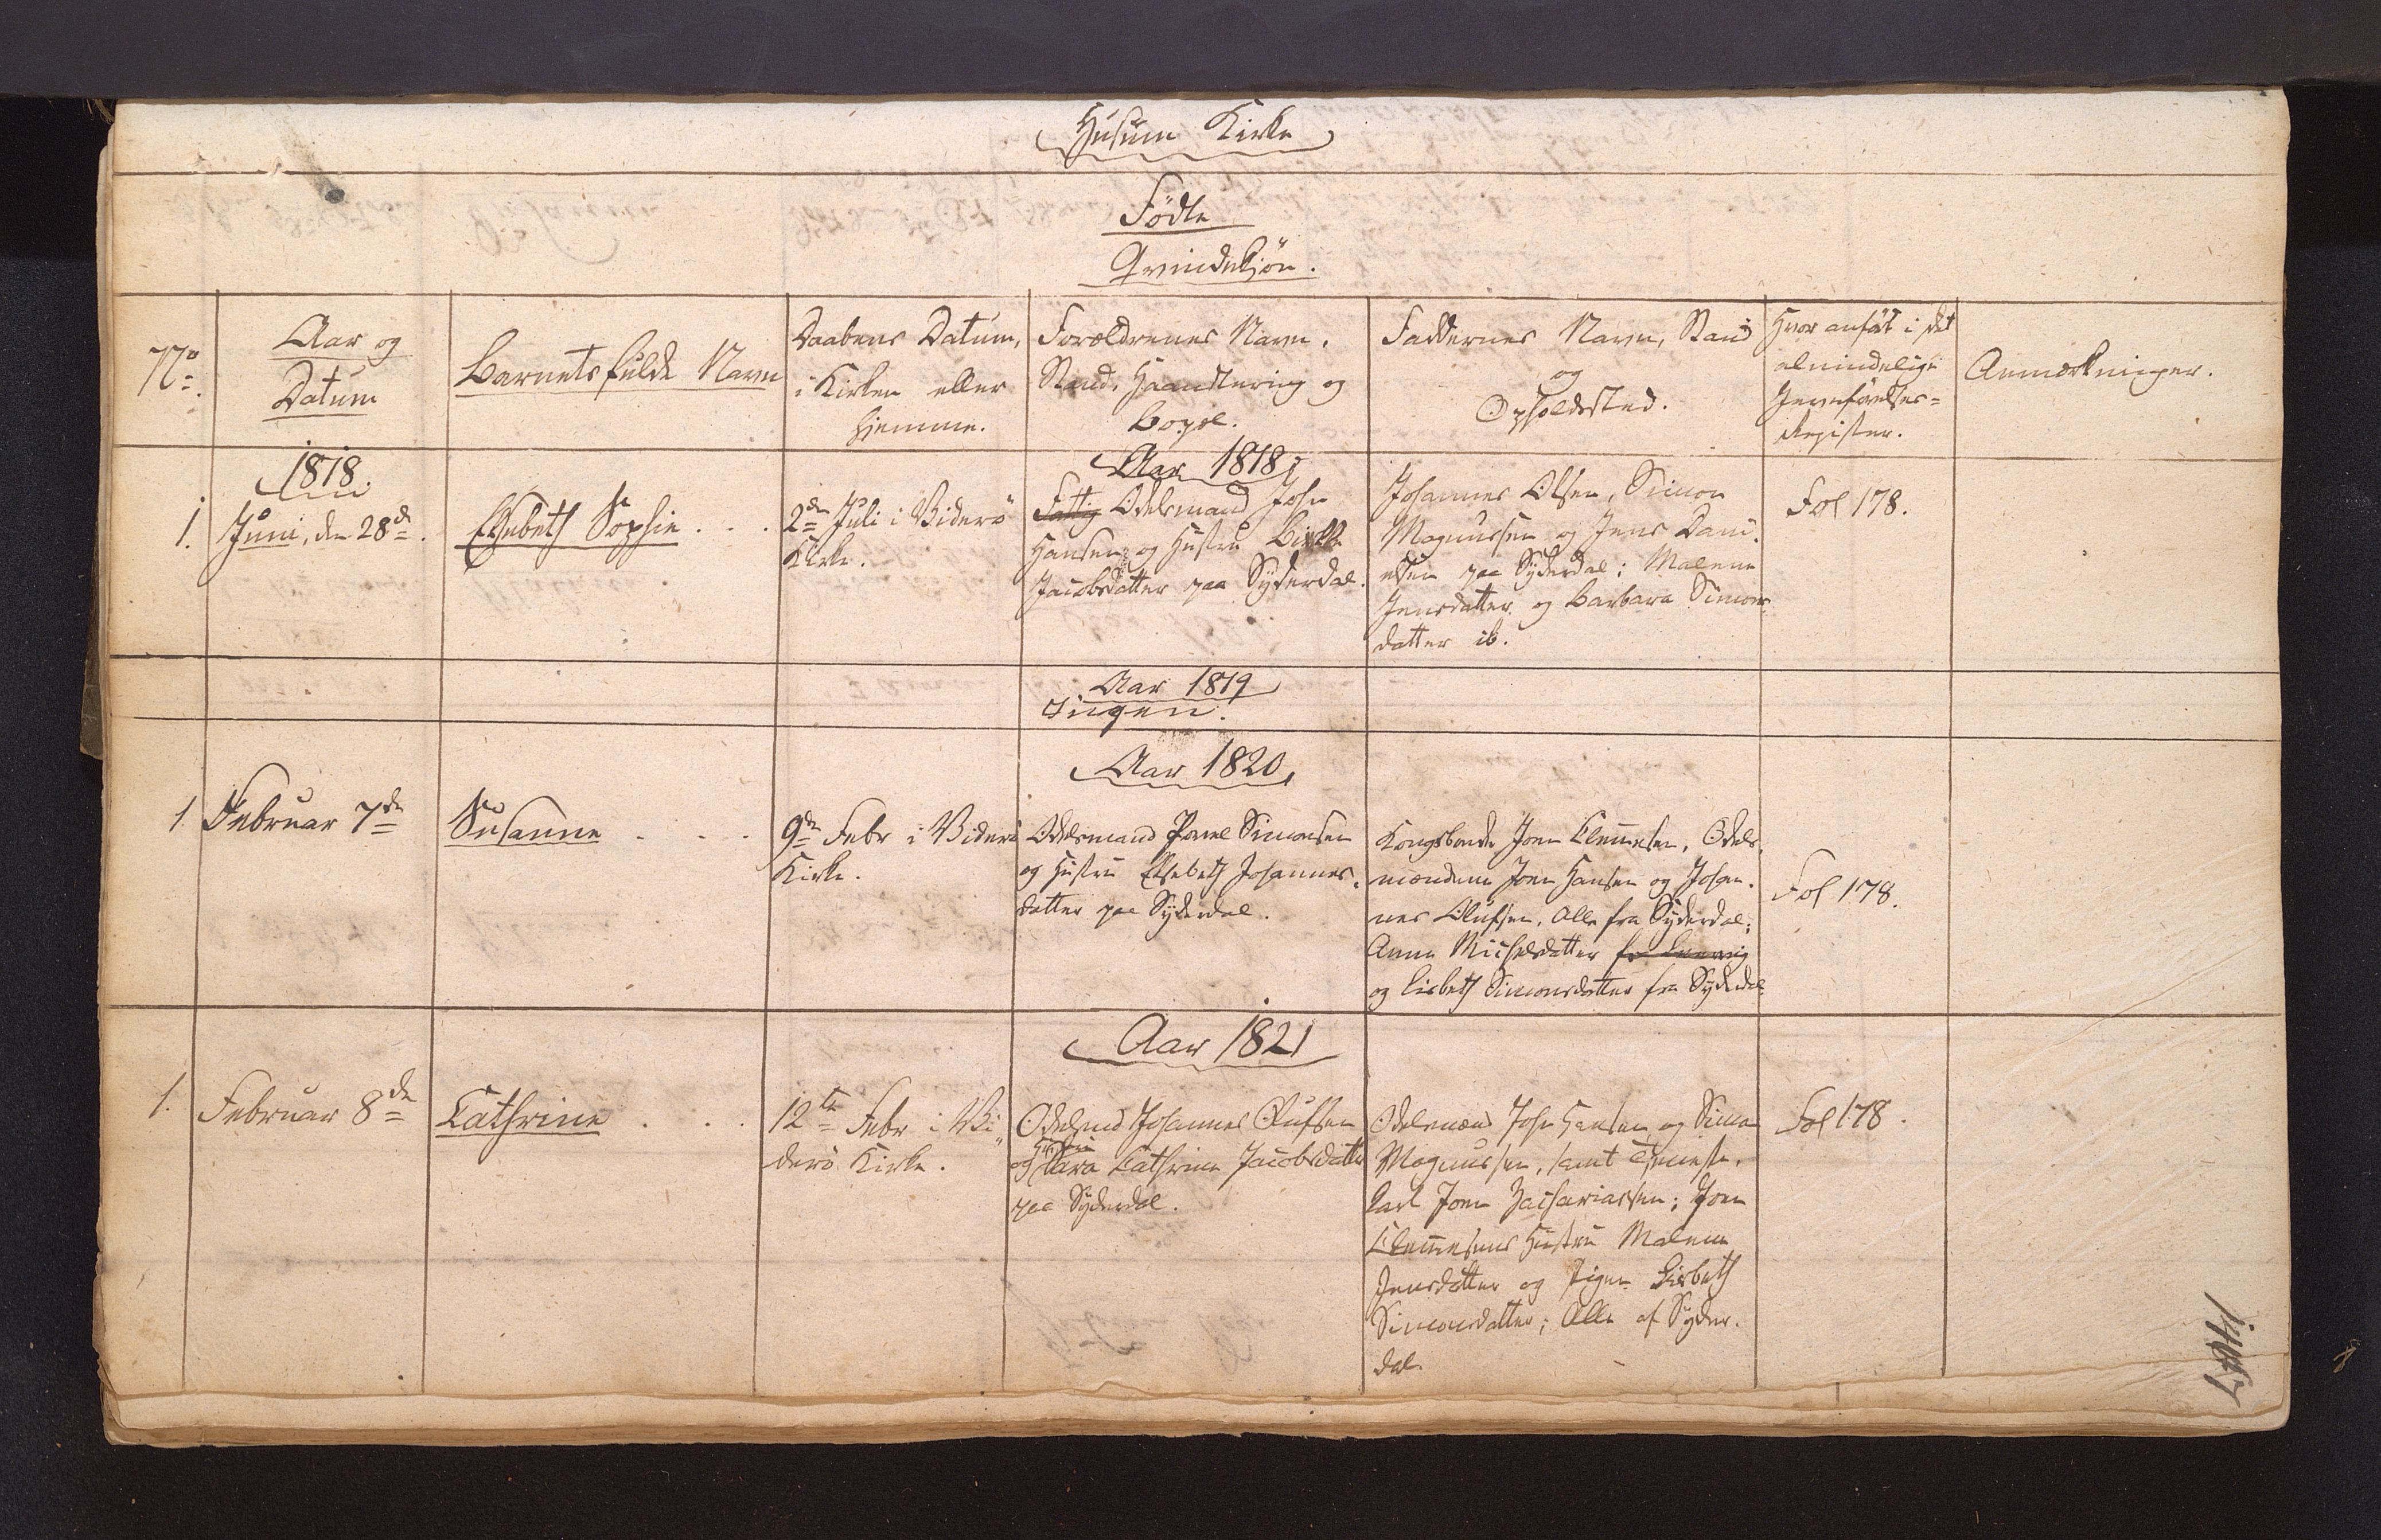 Husum Kirke
Födte
Qvindekjön.
No.
Aar og
Datum
Barnets fulde Navn
Daabens Datum,
i Kirken eller
hjemme.
Forældrenes Navn,
Stand, Haandtering og
Bopæl.
Faddernes Navn, Stand
og
Opholdssted.
Hvor anfört i det
almindelige
Jevnförelses-
Register.
Anmærkninger.
1818.
Aar 1818,
1. Juni, den 28de.
Elsebeth Sophie . . .
2den Juli i Viderö
Kirke.
Fattig Odelsmand John
Hansen og Hustru
Jacobsdatter paa Syderdal.
Johannes Olsen, Simon
Magnussen og Jens Dani-
elsen paa Syderdal; Malene
Jensdatter og Barbara Simons-
datter ib.
Fol 178.
Aar 1819
Ingen.
Aar 1820,
1. Februar 7de
Susanne - - -
9de Febr i Viderö
Kirke.
Odelsmand Povel Simonsen
og Hustru Elsebeth Johannes-
datter paa Syderdal.
Kongsbonde Joen Clemmesen, Odels-
mændene Joen Hansen og Johan-
nes Olufsen, Alle fra Syderdal;
Anne Michelsdatter
og Lisbeth Simonsdatter fra Syderdal
Fol 178.
Aar 1821
1. Februar 8de
Cathrine . . .
12te Febr i Vi-
derö Kirke.
Odelsmd Johannes Olufsen
Hustru
og Clara Cathrine Jacobsdatter
paa Syderdal.
Odelsmænd John Hansen og Simon
Magnussen, samt Tjeneste-
karl Joen Zachariassen; Joen
Clemmesens Hustru Malene
Jensdatter og Pigen Lisbeth
Simonsdatter; Alle af Syder-
dal.
Fol 178.